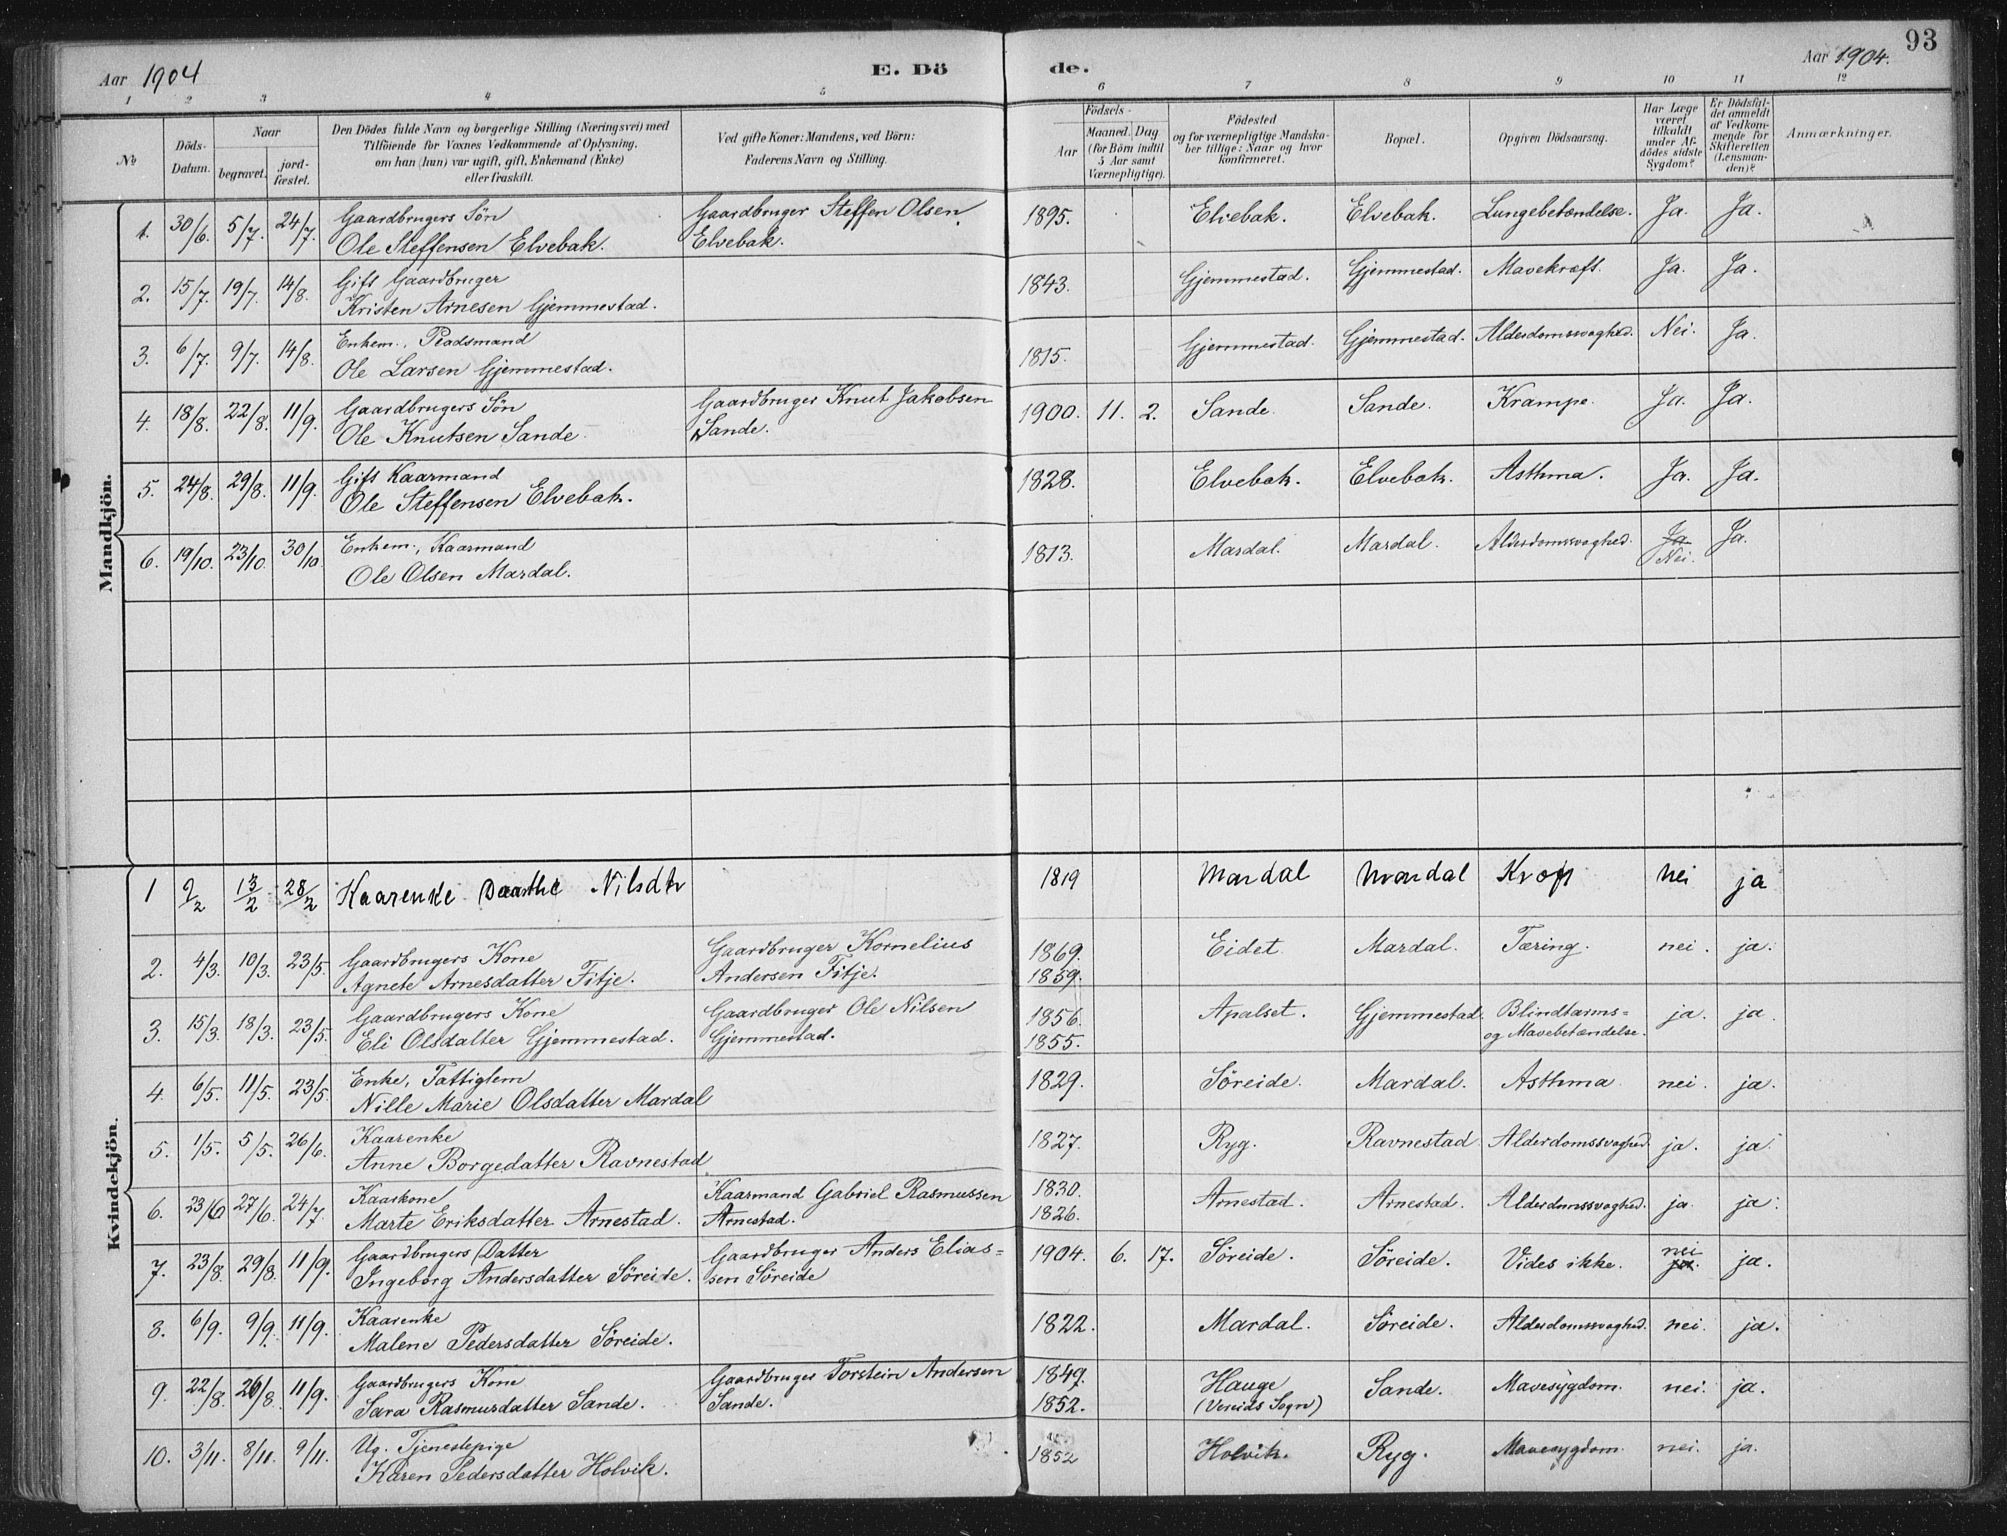 93
Aar 1904
E. Dö
de.
Aar 1904.
1 2 3 4 5 6 7 8 9 10 11 12
No
Döds-
Datum.
Naar
begravet.
jord-
fæstet.
Den Dödes fulde Navn og borgerlige Stilling (Næringsvei) med
Tilföiende for Voxnes Vedkommende af Oplysning,
om han (hun) var ugift, gift, Enkemand (Enke)
eller fraskilt.
Ved gifte Koner: Mandens, ved Börn:
Faderens Navn og Stilling.
Födsels-
Aar
Maaned.
Dag
(for Börn indtil
5 Aar samt
Værnepligtige).
Födested
og for værnepligtige Mandska-
ber tillige: Naar og hvor
konfirmeret.
Bopæl.
Opgiven Dödsaarsag.
Har Læge
været
tilkaldt
under Af-
dödes sidste
Sygdom?
Er Dödsfal-
det anmeldt
af Vedkom-
mende for
Skifteretten
(Lensman-
den)?
Anmærkninger.
Mandkjön.
1. 30/6. 5/7. 24/7. Gaardbrugers Sön Gaardbruger Steffen Olsen 1895. Elvebak. Elvebak. Lungebetændelse. Ja. Ja.
Ole Steffensen Elvebak. Elvebak.
2. 15/7. 19/7. 14/8. Gift Gaardbruger 1843. Gjemmestad. Gjemmestad. Mavekræft. Ja. Ja.
Kristen Arnesen Gjemmestad.
3. 6/7. 9/7. 14/8. Enkem., Pladsmand 1815. Gjemmestad. Gjemmestad. Alderdomssvaghed. Nei. Ja.
Ole Larsen Gjemmestad.
4. 18/8. 22/8. 11/9. Gaardbrugers Sön Gaardbruger Knut Jakobsen 1900. 11. 2. Sande. Sande. Krampe. Ja. Ja.
Ole Knutsen Sande. Sande.
5. 24/8. 29/8. 11/9. Gift Kaarmand 1828. Elvebak. Elvebak. Asthma. Ja. Ja.
Ole Steffensen Elvebak.
6. 19/10. 23/10. 30/10. Enkem., Kaarmand 1813. Mardal. Mardal. Alderdomssvaghed. Ja Ja.
Ole Olsen Mardal. Nei.
Kvindekjön.
1 9/2 13/2 28/2 Kaarenke Daarthe Nilsdtr 1819 Mardal Mardal Kræft nei ja
2. 4/3. 10/3. 23/5. Gaardbrugers Kone Gaardbruger Kornelius 1869. Eidet. Mardal. Tæring. nei. ja.
Agnete Arnesdatter Fitje. Andersen Fitje. 1859.
3. 15/3. 18/3. 23/5. Gaardbrugers Kone Gaardbruger Ole Nilsen 1856. Apalset. Gjemmestad. Blindtarms- ja. ja.
Eli Olsdatter Gjemmestad. Gjemmestad. 1855. og Mavebetændelse.
4. 6/5. 11/5. 23/5. Enke, Fattiglem 1829. Söreide. Mardal. Asthma nei. ja.
Nille Marie Olsdatter Mardal
5. 1/5. 5/5. 26/6. Kaarenke 1827. Ryg. Ravnestad Alderdomssvaghed. ja. ja.
Anne Borgedatter Ravnestad
6. 23/6 27/6. 24/7. Kaarkone Kaarmand Gabriel Rasmussen 1830. Arnestad. Arnestad. Alderdomssvaghed. ja. ja.
Marte Eriksdatter Arnestad. Arnestad. 1826.
7. 23/8. 29/8. 11/9. Gaardbrugers Datter Gaardbruger Anders Elias- 1904. 6. 17. Söreide. Söreide. Vides ikke. nei ja.
Ingeborg Andersdatter Söreide. sen Söreide ja.
8. 6/9. 9/9. 11/9. Kaarenke 1822. Mardal. Söreide. Alderdomssvaghed. nei. ja.
Malene Pedersdatter Söreide.
9. 22/8. 26/8. 11/9. Gaardbrugers Kone Gaardbruger Torstein Andersen 1849. Hauge Sande. Mavesygdom. nei. ja.
Sara Rasmusdatter Sande. Sande. 1852. (Vereids Sogn)
10. 3/11. 8/11. 9/11. Ug. Tjenestepige 1852 Holvik. Ryg. Mavesygdom. nei. ja.
Karen Pedersdatter Holvik.